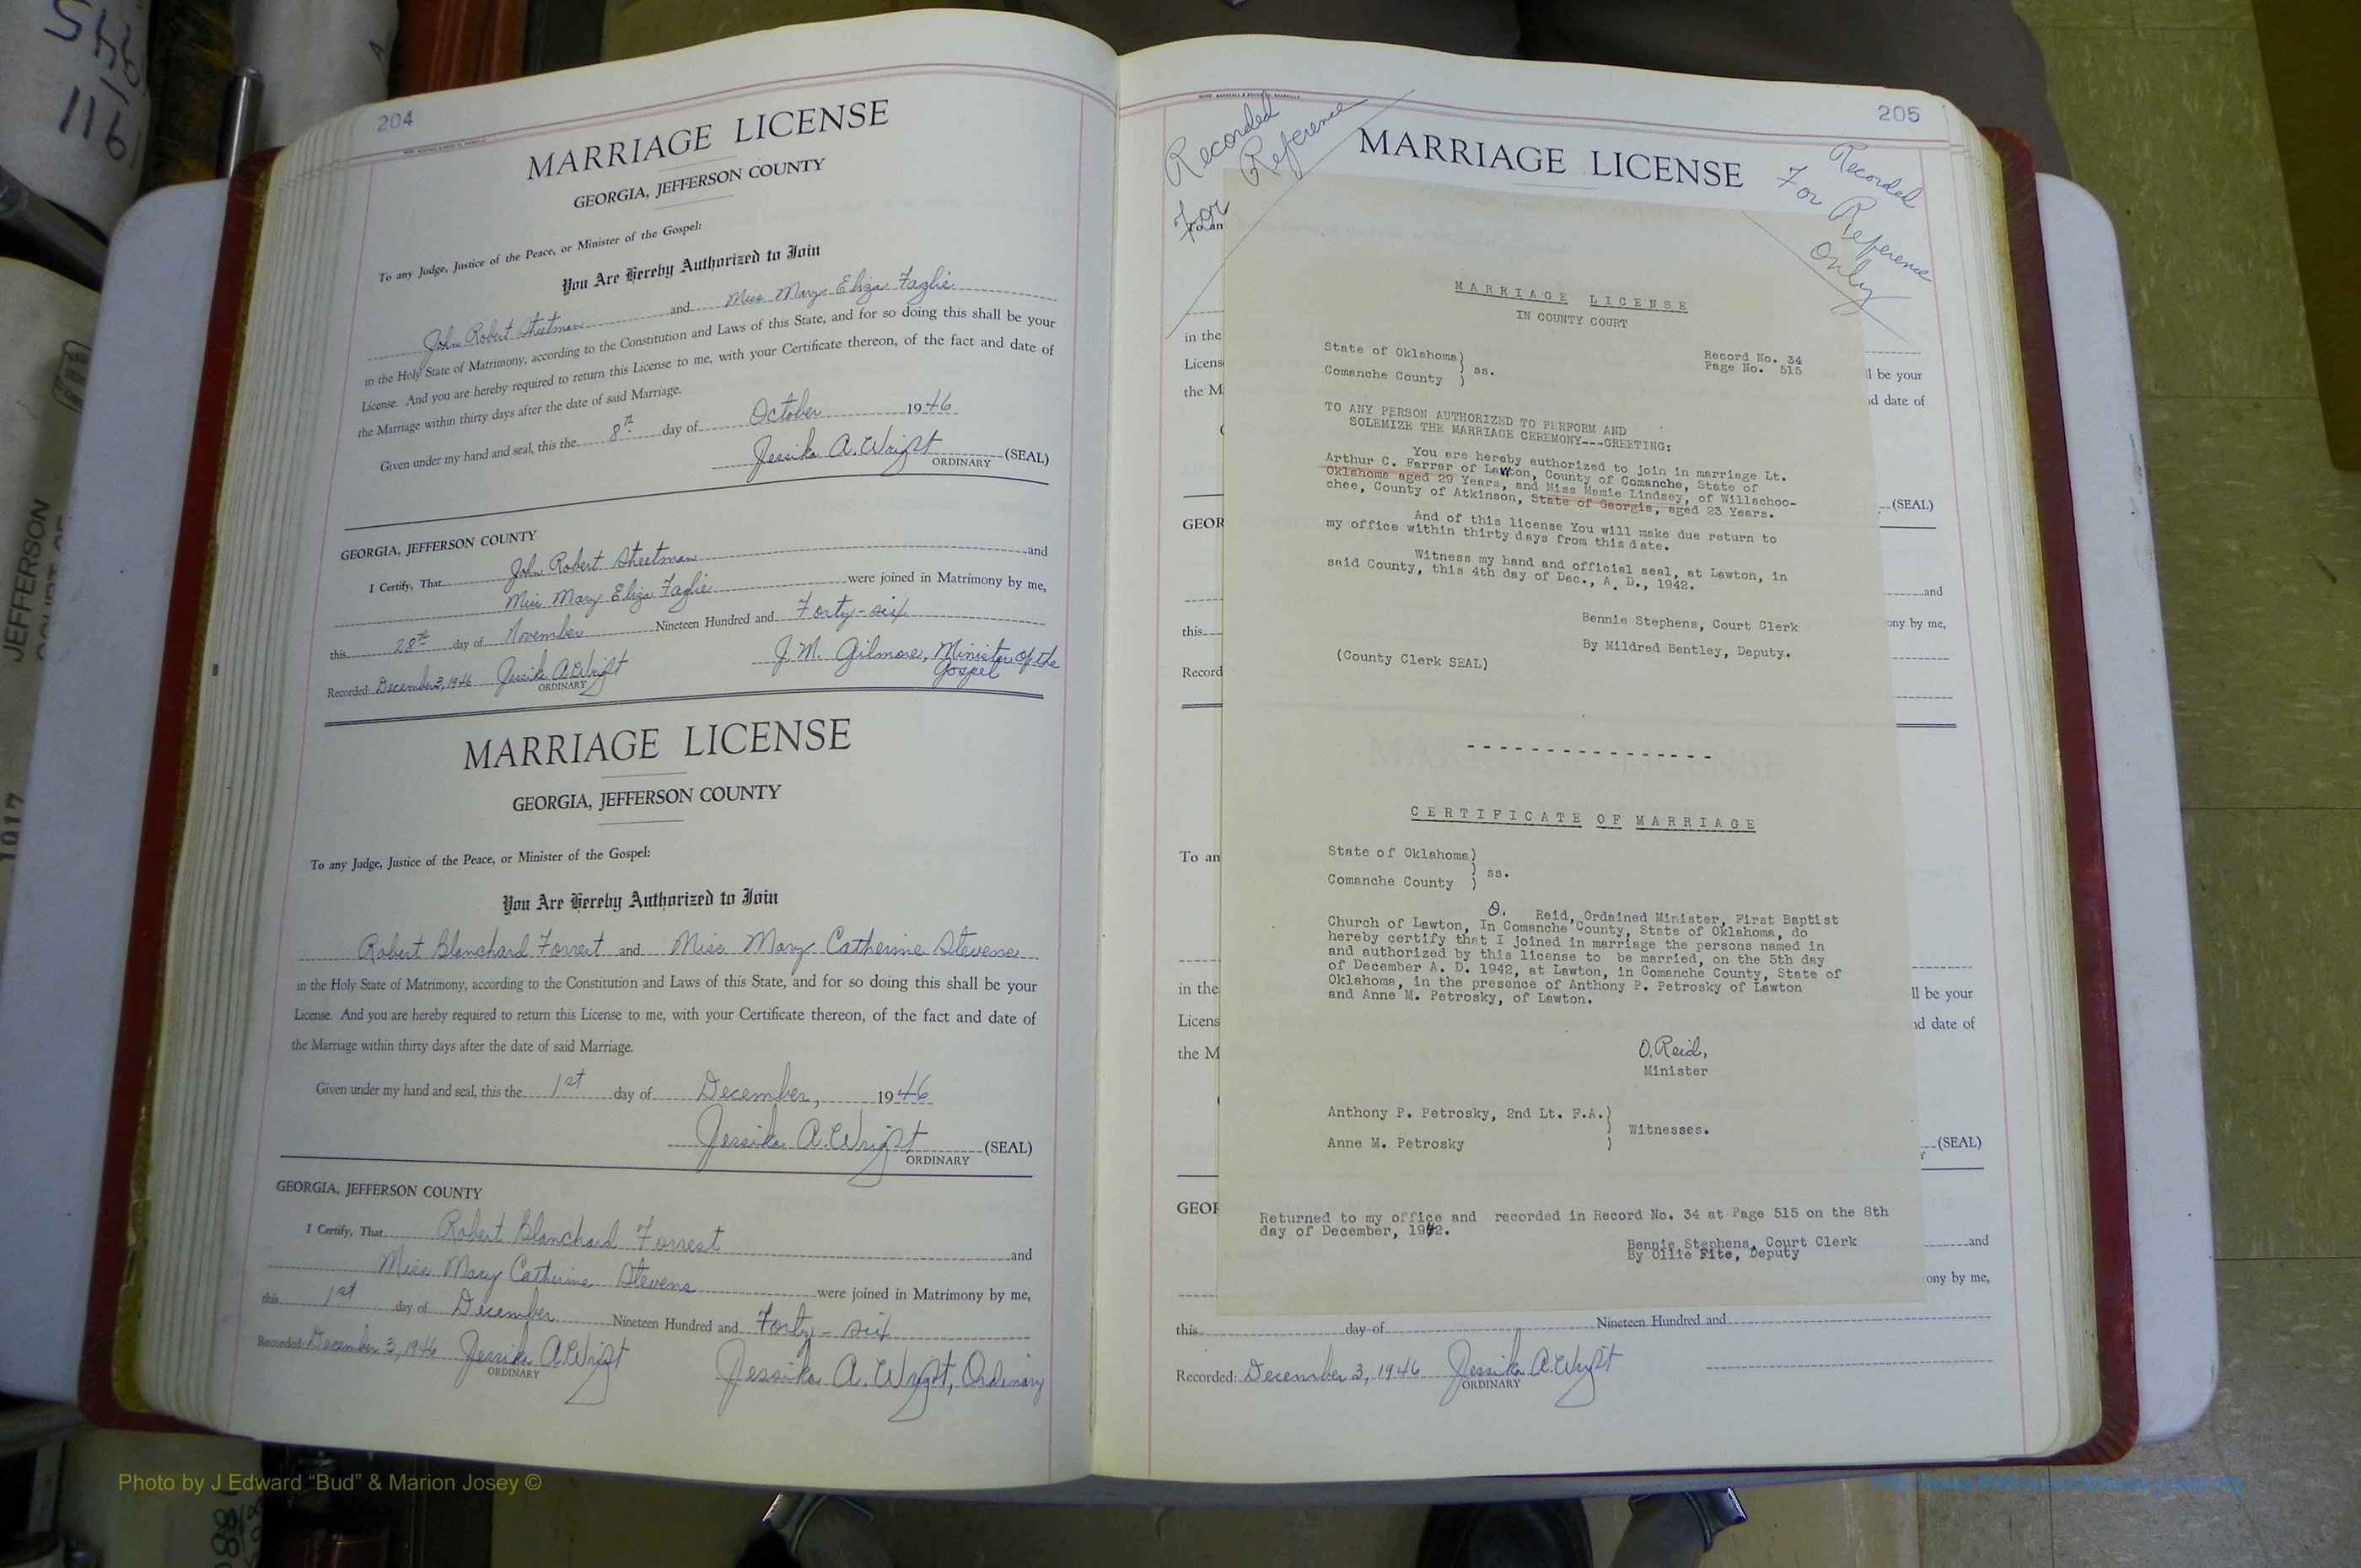 204
MARRIAGE LICENSE
GEORGIA, JEFFERSON COUNTY
To any Judge, Justice of the Peace, or Minister of the Gospel:
You Are Hereby Authorized to Join
John Robert Steetman and Miss Mary Eliza Faglie
in the Holy State of Matrimony, according to the Constitution and Laws of this State, and for so doing this shall be your
License. And you are hereby required to return this License to me, with your Certificate thereon, of the fact and date of
the Marriage within thirty days after the date of said Marriage.
Given under my hand and seal, this the 8th day of October 1946
Jessika A. Wright (SEAL)
ORDINARY
GEORGIA, JEFFERSON COUNTY
I Certify, That John Robert Steetman and
Miss Mary Eliza Faglie were joined in Matrimony by me,
this 28th day of November Nineteen Hundred and Forty-six
Recorded: December 3, 1946 Jessika A. Wright J. M. Gilmore, Minister of the Gospel
ORDINARY
MARRIAGE LICENSE
GEORGIA, JEFFERSON COUNTY
To any Judge, Justice of the Peace, or Minister of the Gospel:
You Are Hereby Authorized to Join
Robert Blanchard Forrest and Miss Mary Catherine Stevens
in the Holy State of Matrimony, according to the Constitution and Laws of this State, and for so doing this shall be your
License. And you are hereby required to return this License to me, with your Certificate thereon, of the fact and date of
the Marriage within thirty days after the date of said Marriage.
Given under my hand and seal, this the 1st day of December, 1946
Jessika A. Wright (SEAL)
ORDINARY
GEORGIA, JEFFERSON COUNTY
I Certify, That Robert Blanchard Forrest and
Miss Mary Catherine Stevens were joined in Matrimony by me,
this 1st day of December Nineteen Hundred and Forty-six
Recorded: December 3, 1946 Jessika A. Wright Jessika A. Wright, Ordinary
ORDINARY
205
Recorded
For Reference
MARRIAGE LICENSE
Recorded
For Reference
Only
MARRIAGE LICENSE
IN COUNTY COURT
State of Oklahoma)
) ss.
Comanche County )
Record No. 34
Page No. 515
TO ANY PERSON AUTHORIZED TO PERFORM AND
SOLEMIZE THE MARRIAGE CEREMONY---GREETING:
You are hereby authorized to join in marriage Lt.
Arthur C. Farrar of Lawton, County of Comanche, State of
Oklahoma aged 29 Years, and Miss Mamie Lindsey, of Willachoo-
chee, County of Atkinson, State of Georgia, aged 23 Years.
And of this license You will make due return to
my office within thirty days from this date.
Witness my hand and official seal, at Lawton, in
said County, this 4th day of Dec., A. D., 1942.
Bennie Stephens, Court Clerk
By Mildred Bentley, Deputy.
(County Clerk SEAL)
CERTIFICATE OF MARRIAGE
State of Oklahoma)
) ss.
Comanche County )
O. Reid, Ordained Minister, First Baptist
Church of Lawton, In Comanche County, State of Oklahoma, do
hereby certify that I joined in marriage the persons named in
and authorized by this license to be married, on the 5th day
of December A. D. 1942, at Lawton, in Comanche County, State of
Oklahoma, in the presence of Anthony P. Petrosky of Lawton
and Anne M. Petrosky, of Lawton.
O. Reid,
Minister
Anthony P. Petrosky, 2nd Lt. F.A.)
) Witnesses.
Anne M. Petrosky )
Returned to my office and recorded in Record No. 34 at Page 515 on the 8th
day of December, 1942.
Bennie Stephens, Court Clerk
By Ollie Fite, Deputy
To an
in the
Licens
the M
l be your
d date of
(SEAL)
GEOR
and
this
ony by me,
Record
To an
in the
Licens
the M
ll be your
d date of
(SEAL)
GEOR
and
ony by me,
this day of Nineteen Hundred and
Recorded: December 3, 1946 Jessika A. Wright
ORDINARY
JEFFERSON
1917
116
Photo by J Edward “Bud” & Marion Josey ©